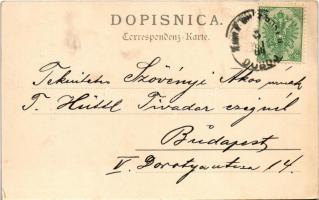 DOPISNICA.
Correspondenz-Karte.
Tekintetes Szövényi Akos urnak
T. Hüttl Tivadar czégnél
Budapest
V. Dorottya utcza 14.